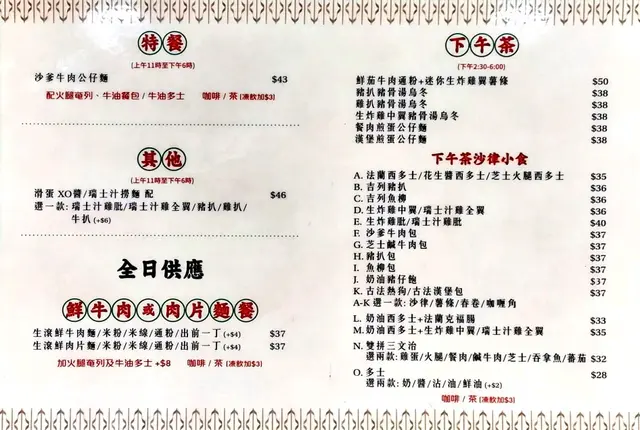 特餐
(上午11時至下午6時)
沙爹牛肉公仔麵 $43
配火腿奄列、牛油餐包/牛油多士 咖啡/茶(凍飲加$3)
其他
(上午11時至下午6時)
滑蛋 XO醬/瑞士汁撈麵 配 $46
選一款: 瑞士汁雞肶/瑞士汁雞全翼/豬扒/雞扒/
牛扒 (+$6)
全日供應
鮮牛肉或肉片麵餐
生滾鮮牛肉麵/米粉/米線/通粉/出前一丁(+$4) $37
生滾鮮肉片麵/米粉/米線/通粉/出前一丁(+$4) $37
加火腿奄列及牛油多士 +$8 咖啡/茶(凍飲加$3)
下午茶
(下午2:30-6:00)
鮮茄牛肉通粉+迷你生炸雞翼薯條 $50
豬扒豬骨湯烏冬 $38
雞扒豬骨湯烏冬 $38
生炸雞中翼豬骨湯烏冬 $38
餐肉煎蛋公仔麵 $38
漢堡煎蛋公仔麵 $38
下午茶沙律小食
A. 法蘭西多士/花生醬西多士/芝士火腿西多士 $35
B. 吉列豬扒 $36
C. 吉列魚柳 $36
D. 生炸雞中翼/瑞士汁雞全翼 $36
E. 生炸雞肶/瑞士汁雞肶 $40
F. 沙爹牛肉包 $37
G. 芝士鹹牛肉包 $37
H. 豬扒包 $37
I. 魚柳包 $37
J. 奶油豬仔飽 $37
K. 古法熱狗/古法漢堡包 $37
A-K 選一款: 沙律/薯條/春卷/咖喱角
L. 奶油西多士+法蘭克福腸 $33
M. 奶油西多士+生炸雞中翼/瑞士汁雞全翼 $35
N. 雙拼三文治
選兩款: 雞蛋/火腿/餐肉/鹹牛肉/芝士/吞拿魚/蕃茄 $32
O. 多士 $28
選兩款: 奶/醬/沾/油/鮮油(+$2)
咖啡/茶(凍飲加$3)